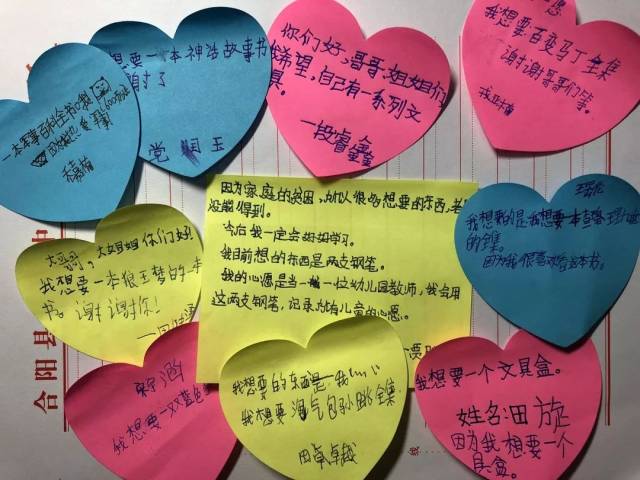 想要一本神话故事书
谢了
党润玉
你们好,哥哥姐姐们
希望,自己有一系列文
具。
一段睿鑫
愿
我想要百变马丁全集
谢谢哥哥们等。
一本军事百科全书
因为家庭的贫困,所以很多想要的东西,老
没能得到。
今后我一定会好好学习。
我目前想的东西是两支钢笔。
我的心愿是当一位幼儿园教师,我会用
这两支钢笔,记录所有儿童的心愿。
我想要的是我想要本查理
的集。
因为我很喜欢看这本书。
大哥哥,大姐姐你们好
我想要一本狼王梦的一本
书。谢谢你!
我想要一双蓝色
我想要的东西是:我
我想要淘气包孙跳全集
田卓越
我想要一个文具盒。
姓名:田旋
因为我想要一个
具盒。
合阳县